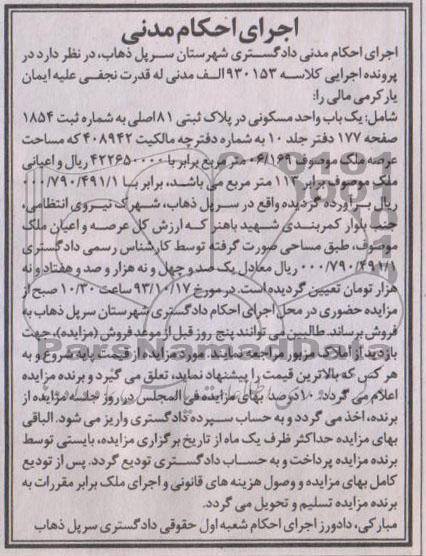 اجرای احکام مدنی
اجرای احکام مدنی دادگستری شهرستان سرپل ذهاب، در نظر دارد در
پرونده اجرایی کلاسه ۹۳۰۱۵۳الف مدنی له قدرت نجفی علیه ایمان
یارکرمی مالی را:
شامل: یک باب واحد مسکونی در پلاک ثبتی ۸۱اصلی به شماره ثبت ۱۸۵۴
صفحه ۱۷۷ دفتر جلد ۱۰ به شماره دفترچه مالکیت ۴۰۸۹۴۲ که مساحت
عرصه ملک موصوف ۰۶/۱۶۹ متر مربع برابر با ۴۲۲۶۵۰۰۰۰ ریال و اعیانی
ملک موصوف برابر ۱۱۳ متر مربع می باشد، برابر با ۰۰۰/۷۹۰/۴۹۱/۱
ریال برآورده گردیده واقع در سرپل ذهاب، شهرک نیروی انتظامی،
جنب بلوار کمربندی شهید باهنر که ارزش کل عرصه و اعیان ملک
موصوف، طبق مساحی صورت گرفته توسط کارشناس رسمی دادگستری
۰۰۰/۷۹۰/۴۹۱/۱ ریال معادل یک صد و چهل و نه هزار و صد و هفتاد و نه
هزار تومان تعیین گردیده است. در مورخ ۹۳/۱۰/۱۷ ساعت ۱۰/۳۰ صبح از
مزایده حضوری در محل اجرای احکام دادگستری شهرستان سرپل ذهاب به
فروش برساند. طالبین می توانند پنج روز قبل از موعد فروش (مزایده)، جهت
بازدید از املاک مزبور مراجعه نمایند. مورد مزایده از قیمت پایه شروع و به
هر کس که بالاترین قیمت را پیشنهاد نماید، تعلق می گیرد و برنده مزایده
اعلام می گردد. ۱۰درصد بهای مزایده فی المجلس در روز جلسه مزایده از
برنده، اخذ می گردد و به حساب سپرده دادگستری واریز می شود. الباقی
بهای مزایده حداکثر ظرف یک ماه از تاریخ برگزاری مزایده، بایستی توسط
برنده مزایده پرداخت و به حساب دادگستری تودیع گردد. پس از تودیع
کامل بهای مزایده و وصول هزینه های قانونی و اجرای ملک برابر مقررات به
برنده مزایده تسلیم و تحویل می گردد.
مبارکی، دادورز اجرای احکام شعبه اول حقوقی دادگستری سرپل ذهاب